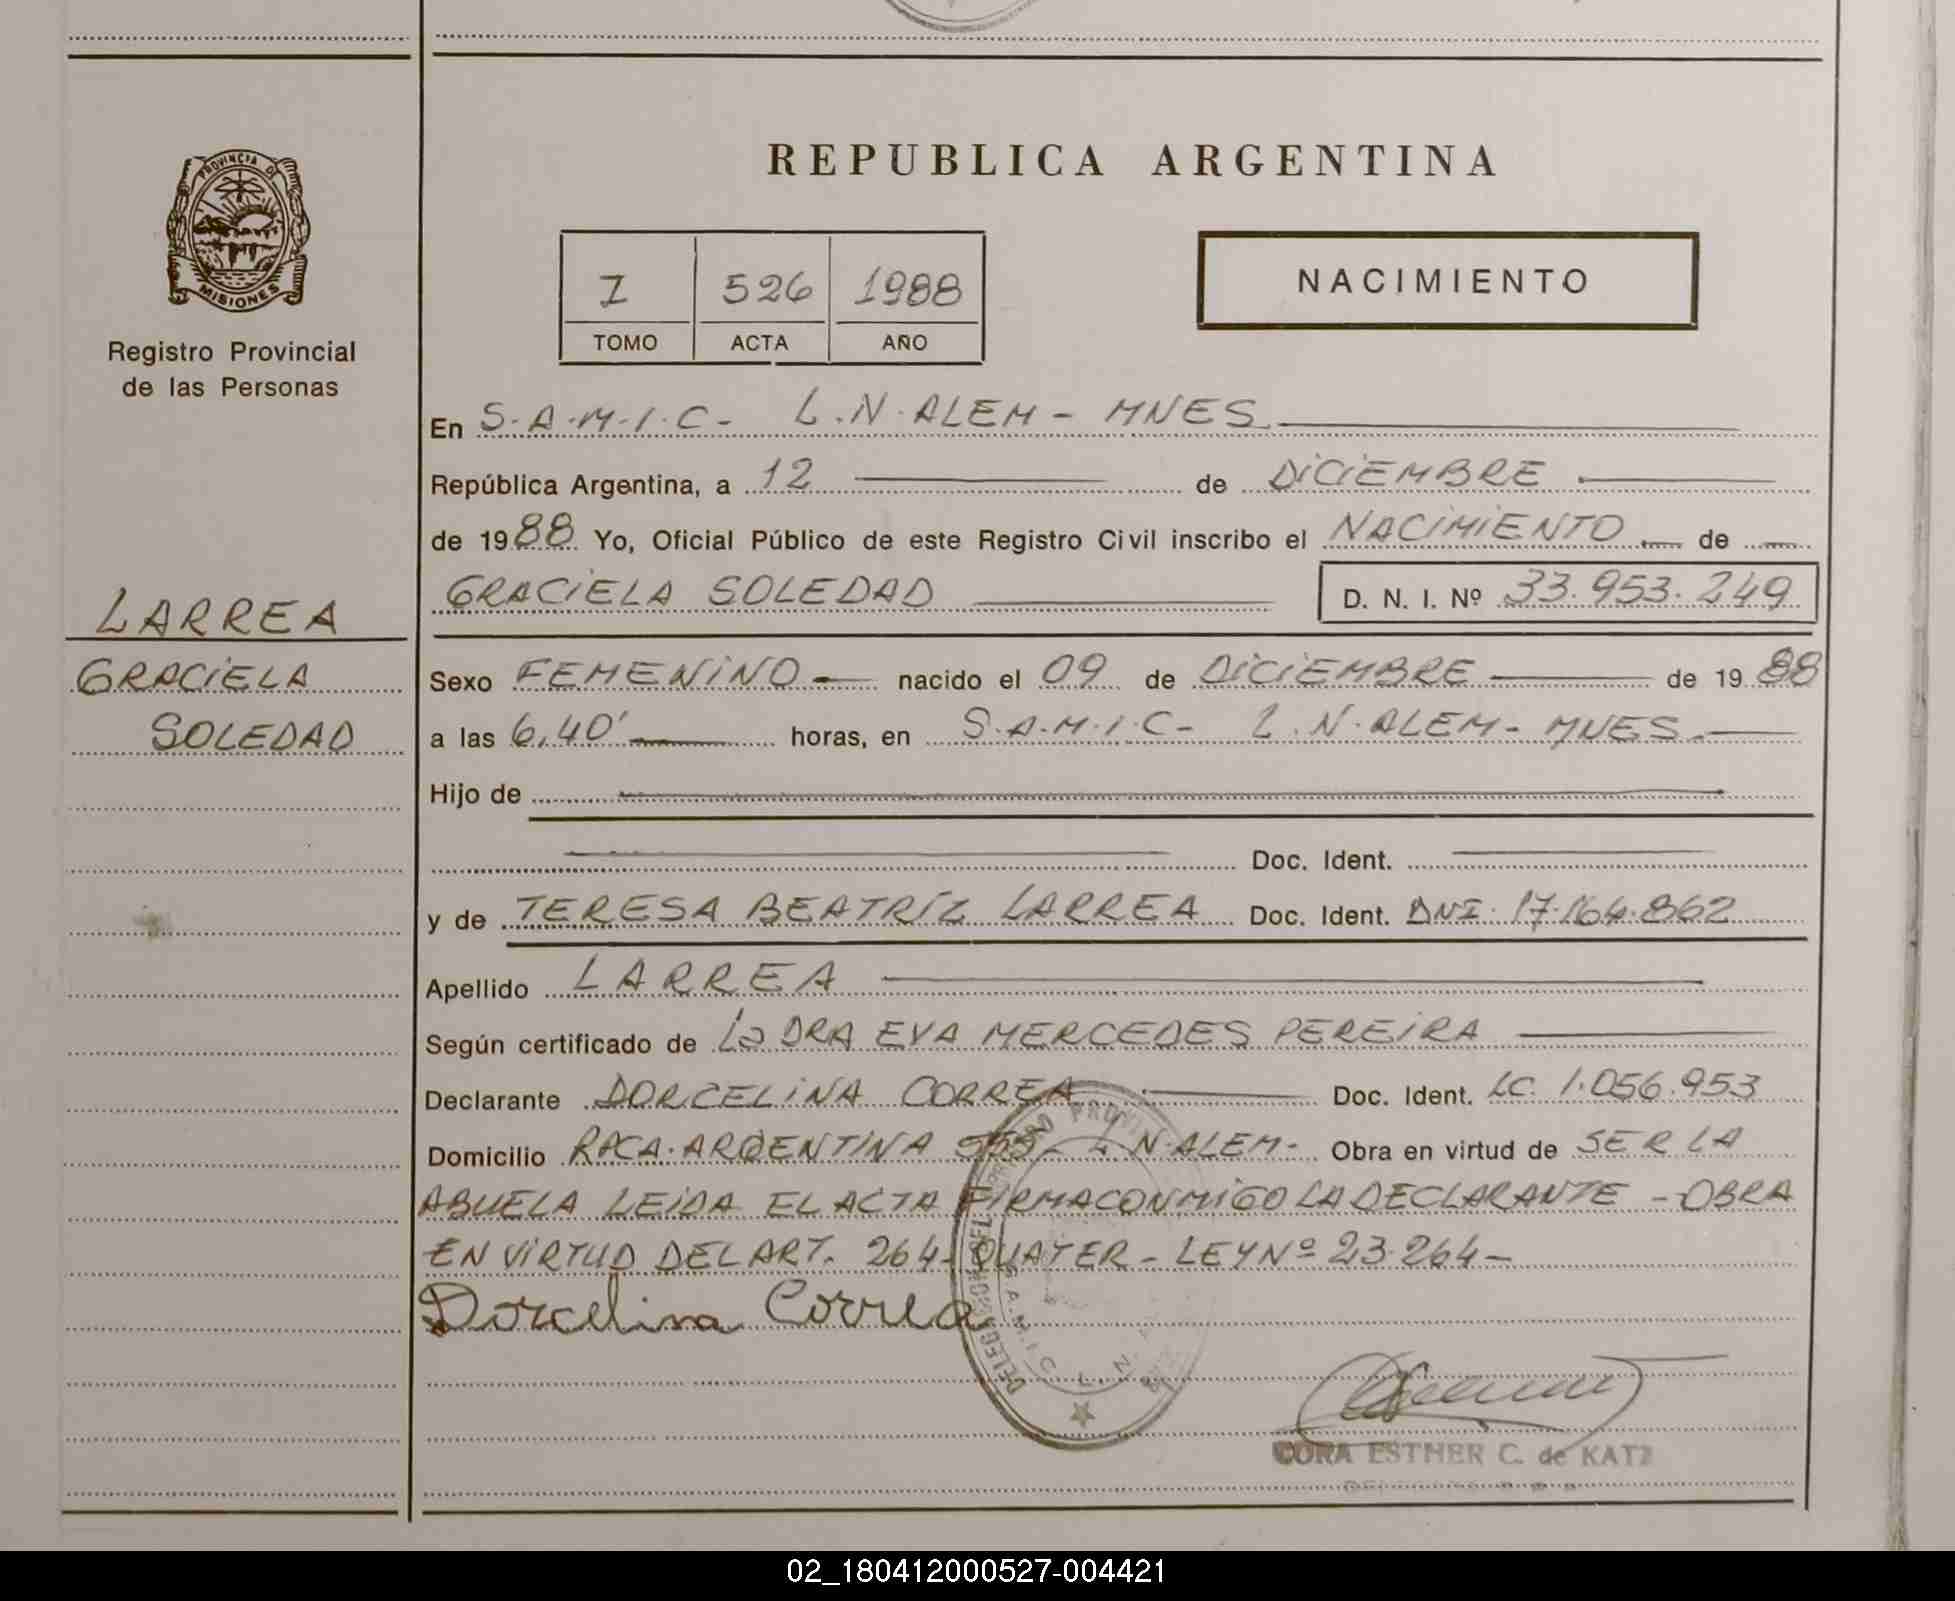 REPUBLICA ARGENTINA
PROVINCIA DE
MISIONES
Registro Provincial
de las Personas
I 526 1988
TOMO ACTA AÑO
NACIMIENTO
En S.A.M.I.C- L.N.ALEM - MNES.
República Argentina, a 12 de DICIEMBRE
de 1988 Yo, Oficial Público de este Registro Civil inscribo el NACIMIENTO de
GRACIELA SOLEDAD D. N. I. Nº 33.953.249
LARREA
GRACIELA
SOLEDAD
Sexo FEMENINO nacido el 09 de DICIEMBRE de 1988
a las 6,40' horas, en S.A.M.I.C- L.N.ALEM- MNES.
Hijo de
Doc. Ident.
y de TERESA BEATRÍZ LARREA Doc. Ident. DNI. 17.164.862
Apellido LARREA
Según certificado de La DRA EVA MERCEDES PEREIRA
Declarante DORCELINA CORREA Doc. Ident. LC. 1.056.953
Domicilio RCA.ARGENTINA 555- L N.ALEM- Obra en virtud de SER LA
ABUELA LEIDA EL ACTA FIRMA CONMIGO LA DECLARANTE - OBRA
EN VIRTUD DEL ART. 264- QUATER - LEY Nº 23.264-
Dorcelina Correa
S.A.M.I.C. L.N.
CORA ESTHER C. de KATZ
02_180412000527-004421